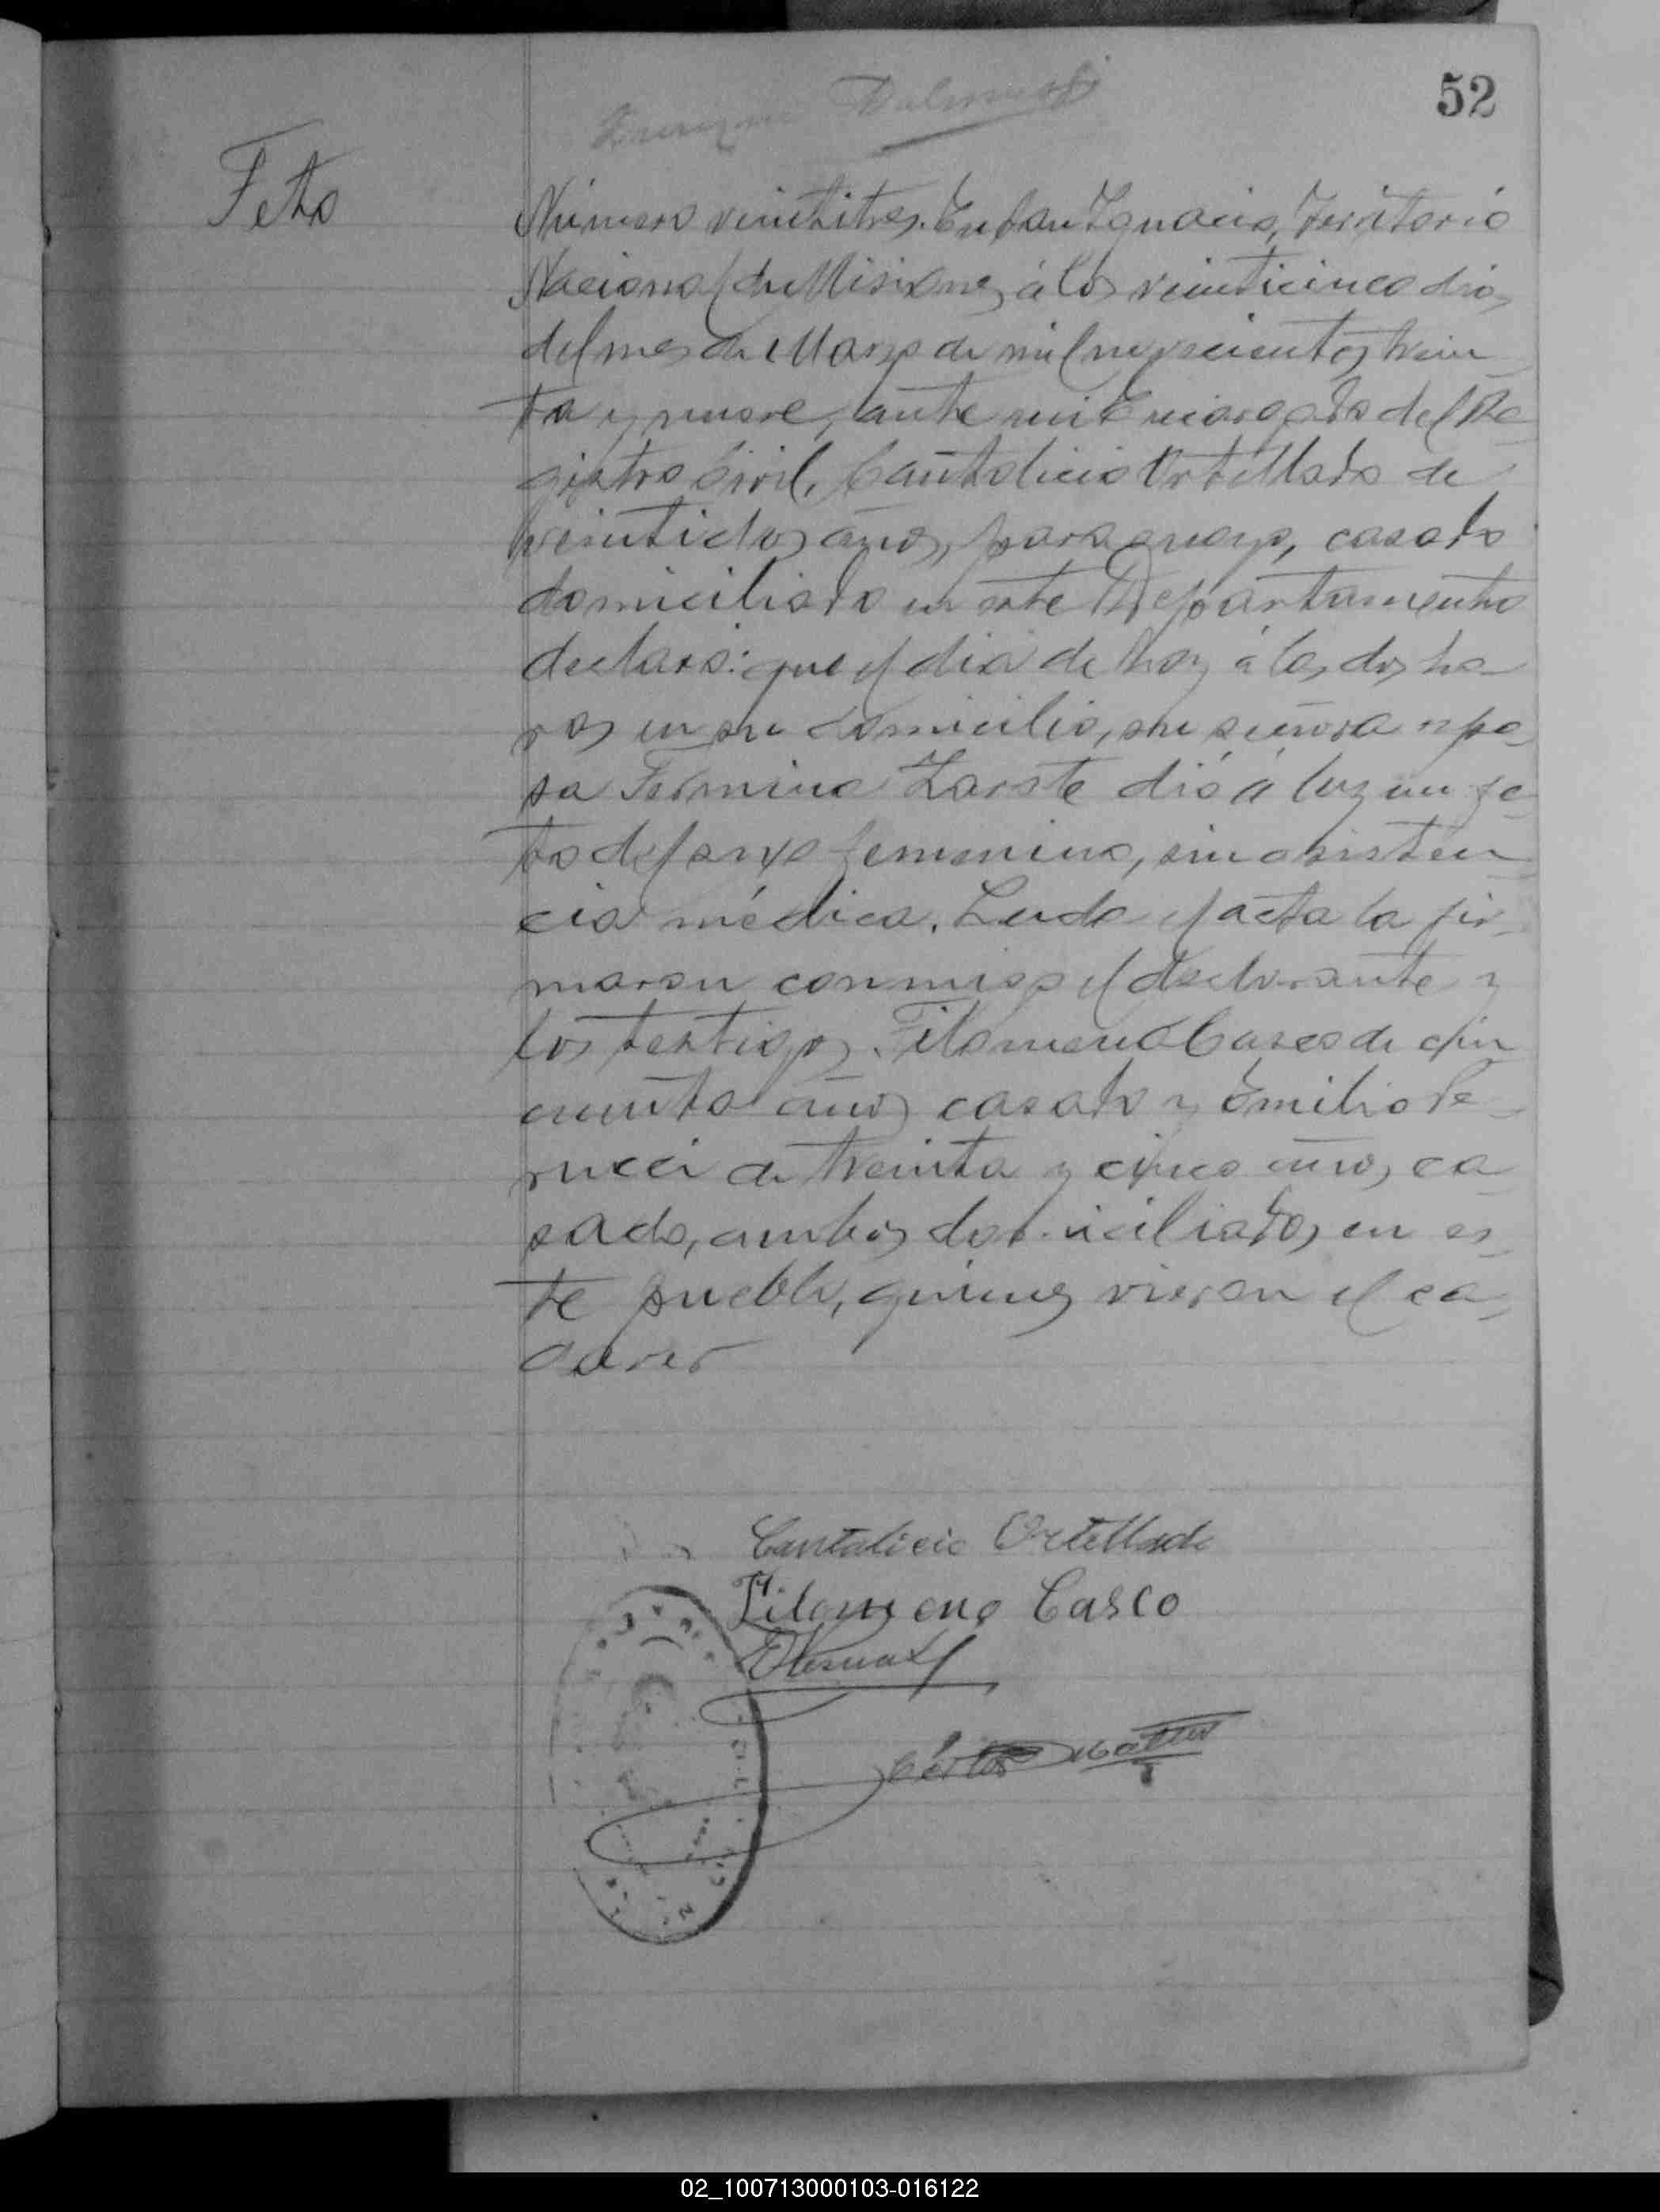 52
Feto
Número veintitres. En San Ignacio, Territorio
Nacional de Misiones, á los veinticinco dias
del mes de Marzo de mil novecientos trein
ta y nueve, ante mi Encargado del Re-
gistro Civil, Cantalicio Ortellado de
veintidos años, paraguayo, casado
domiciliado en este Departamento
declaró: que el dia de hoy á las dos ho-
ras en su domicilio, su señora espo-
sa Fermina Zarate dió á luz un fe-
to del sexo femenino, sin asisten-
cia médica. Leida el acta la fir-
maron conmigo el declarante y
los testigos Filomeno Casco de cin
cuenta años casado y Emilio Pe-
rucci de treinta y cinco años, ca-
sado, ambos domiciliados en es-
te pueblo, quienes vieron el ca-
daver
Cantalicio Ortellado
Filomeno Casco
02_100713000103-016122